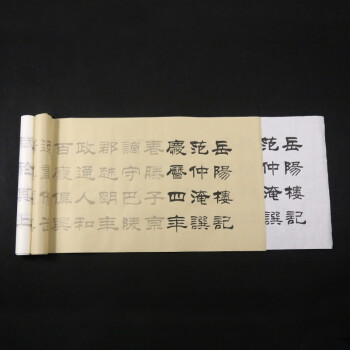 岳陽樓記
范仲淹譔
岳陽樓記
范仲淹譔
慶曆四年
春滕子京
謫守巴陵
郡越明年
政通人和
百廢俱興